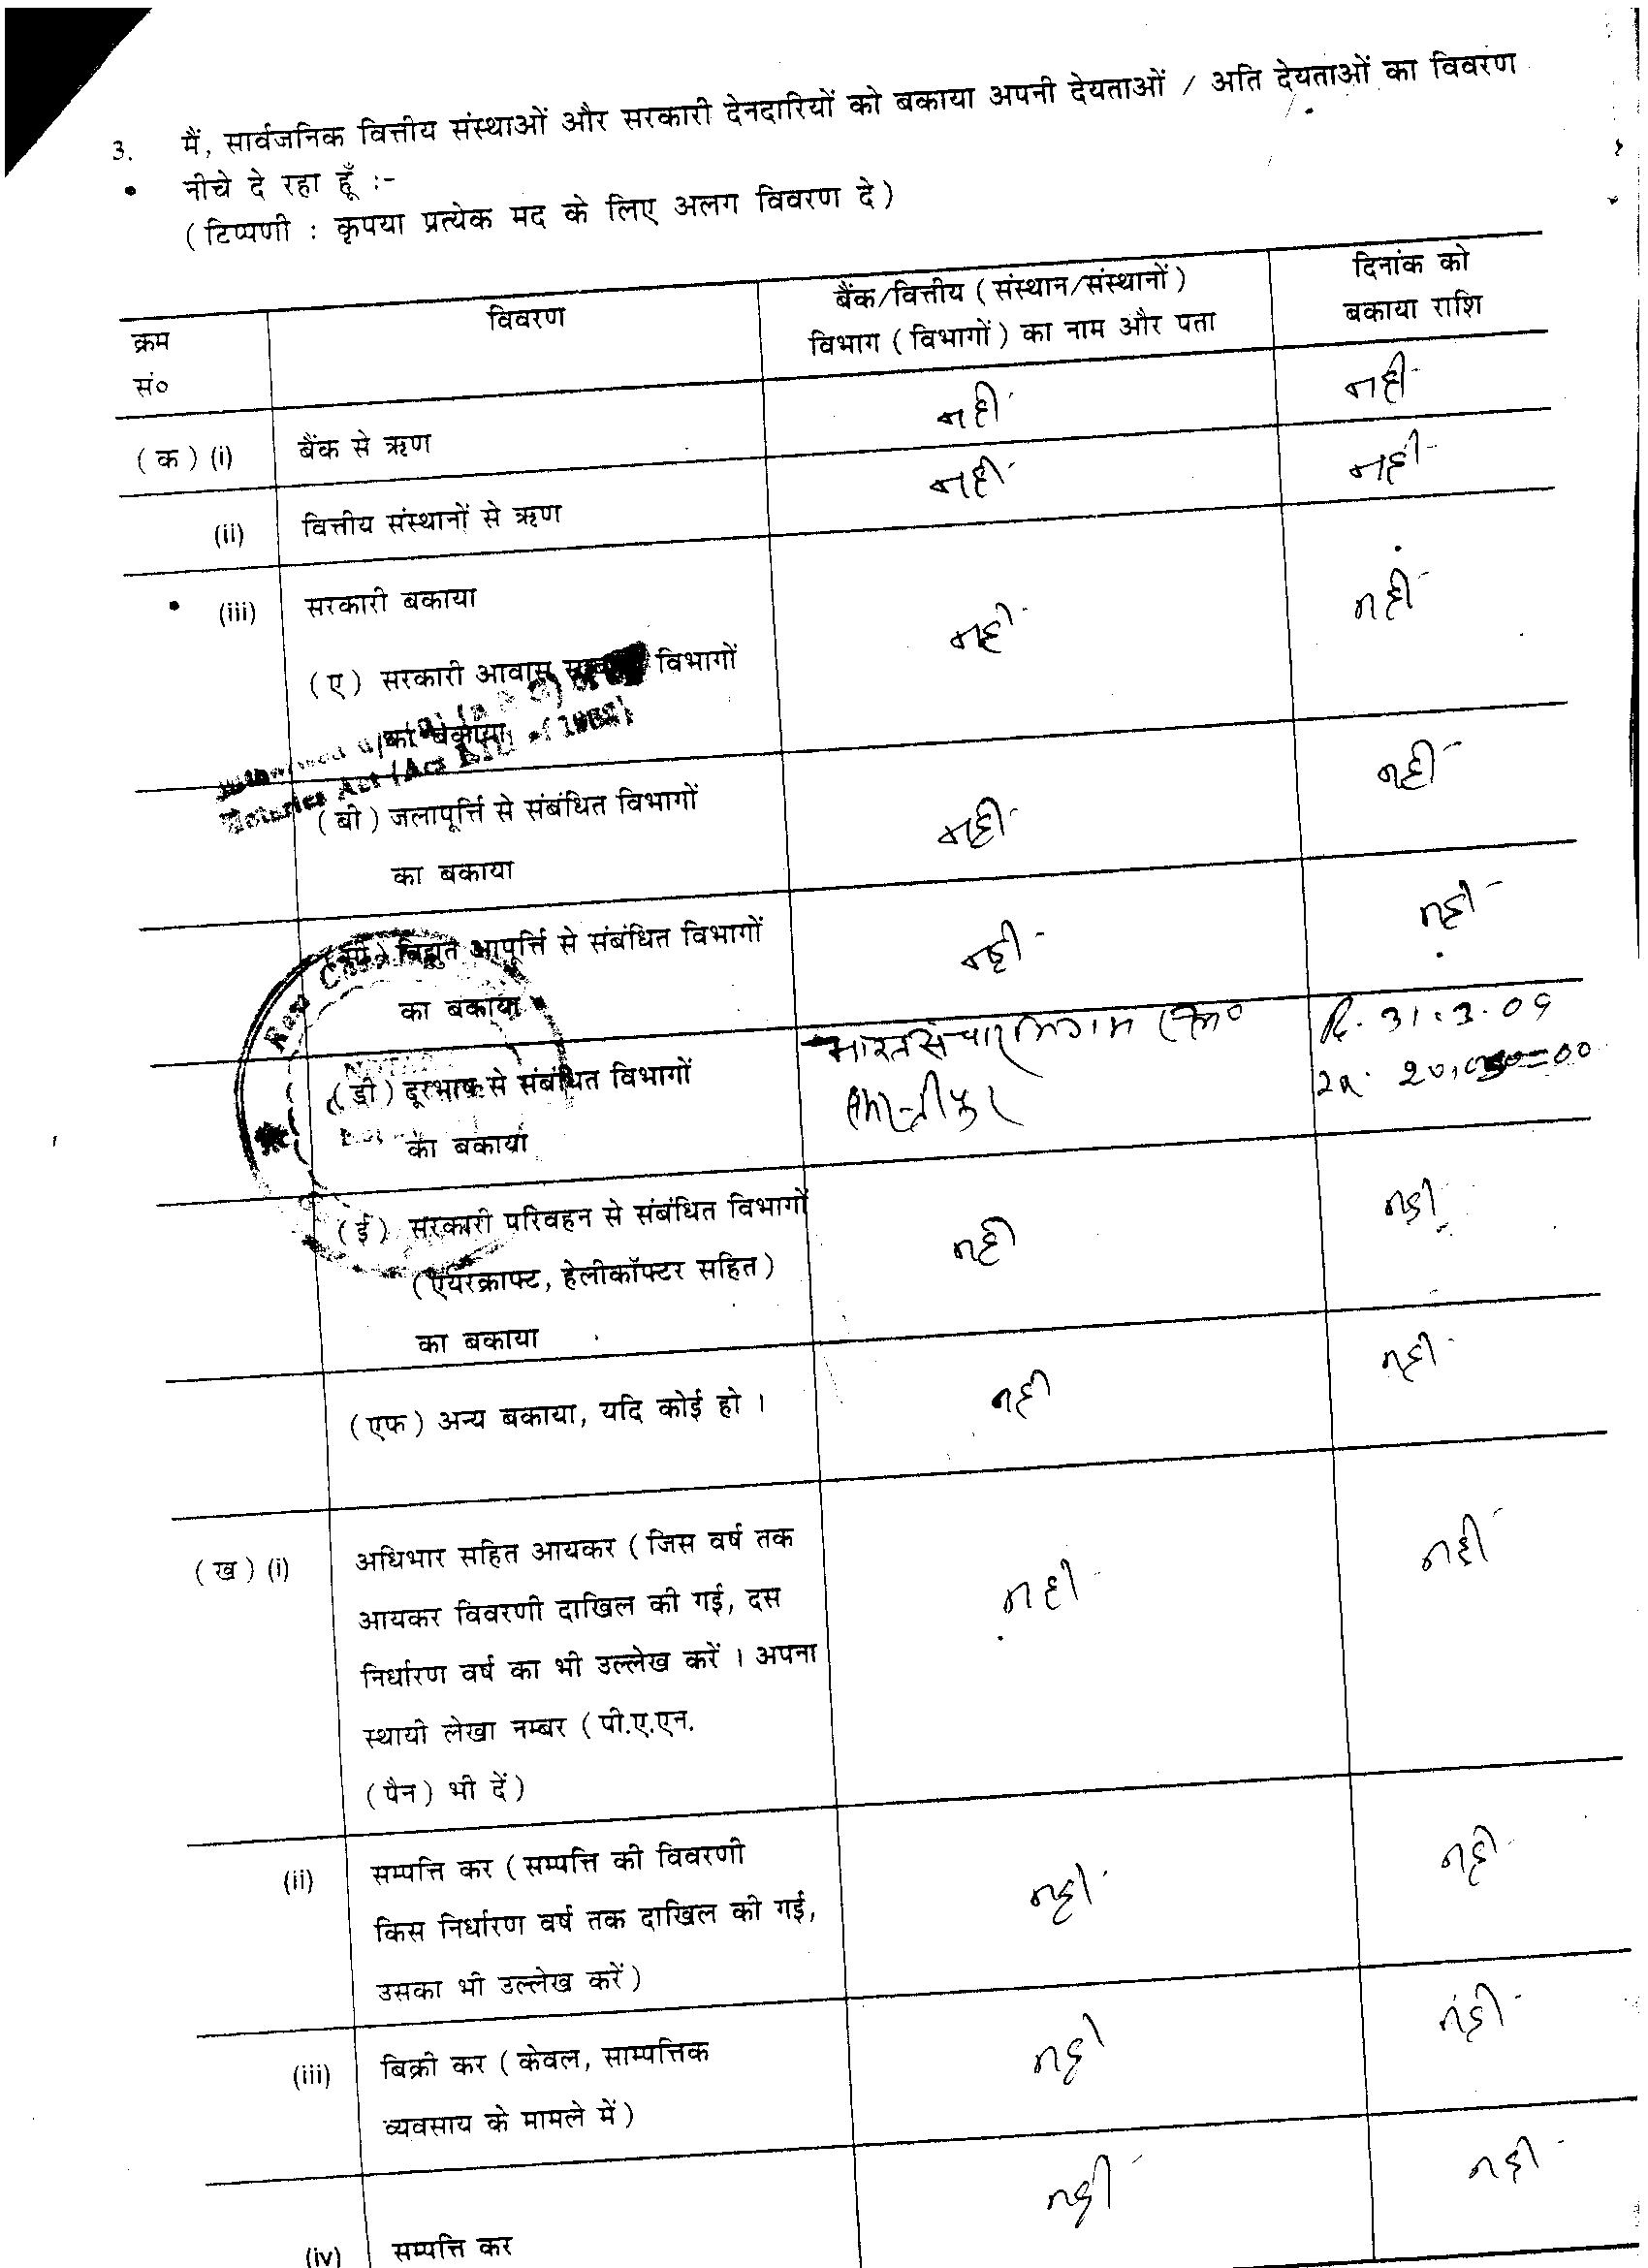 3. मैं, सार्वजनिक वित्तीय संस्थाओं और सरकारी देनदारियों को बकाया अपनी देयताओं / अति देयताओं का विवरण
नीचे दे रहा हूँ :-
(टिप्पणी : कृपया प्रत्येक मद के लिए अलग विवरण दे)
क्रम सं० विवरण बैंक/वित्तीय (संस्थान/संस्थानों) दिनांक को
विभाग (विभागों) का नाम और पता बकाया राशि
(क) (i) बैंक से ऋण नहीं नहीं
(ii) वित्तीय संस्थानों से ऋण नहीं नहीं
(iii) सरकारी बकाया नहीं नहीं
(ए) सरकारी आवास विभागों
का बकाया
Notaries Act (Act
(बी) जलापूर्त्ति से संबंधित विभागों नहीं नहीं
का बकाया
(सी) विद्युत आपूर्त्ति से संबंधित विभागों नहीं नहीं
का बकाया
(डी) दूरभाष से संबंधित विभागों भारत संचार निगम दि. 31.3.09
का बकाया
(ई) सरकारी परिवहन से संबंधित विभागों नहीं नहीं
(एयरक्राफ्ट, हेलीकॉफ्टर सहित)
का बकाया
(एफ) अन्य बकाया, यदि कोई हो । नहीं नहीं
(ख) (i) अधिभार सहित आयकर (जिस वर्ष तक नहीं नहीं
आयकर विवरणी दाखिल की गई, दस
निर्धारण वर्ष का भी उल्लेख करें । अपना
स्थायी लेखा नम्बर (पी.ए.एन.
(पैन) भी दें)
(ii) सम्पत्ति कर (सम्पत्ति की विवरणी नहीं नहीं
किस निर्धारण वर्ष तक दाखिल की गई,
उसका भी उल्लेख करें)
(iii) बिक्री कर (केवल, साम्पत्तिक नहीं नहीं
व्यवसाय के मामले में)
(iv) सम्पत्ति कर नहीं नहीं